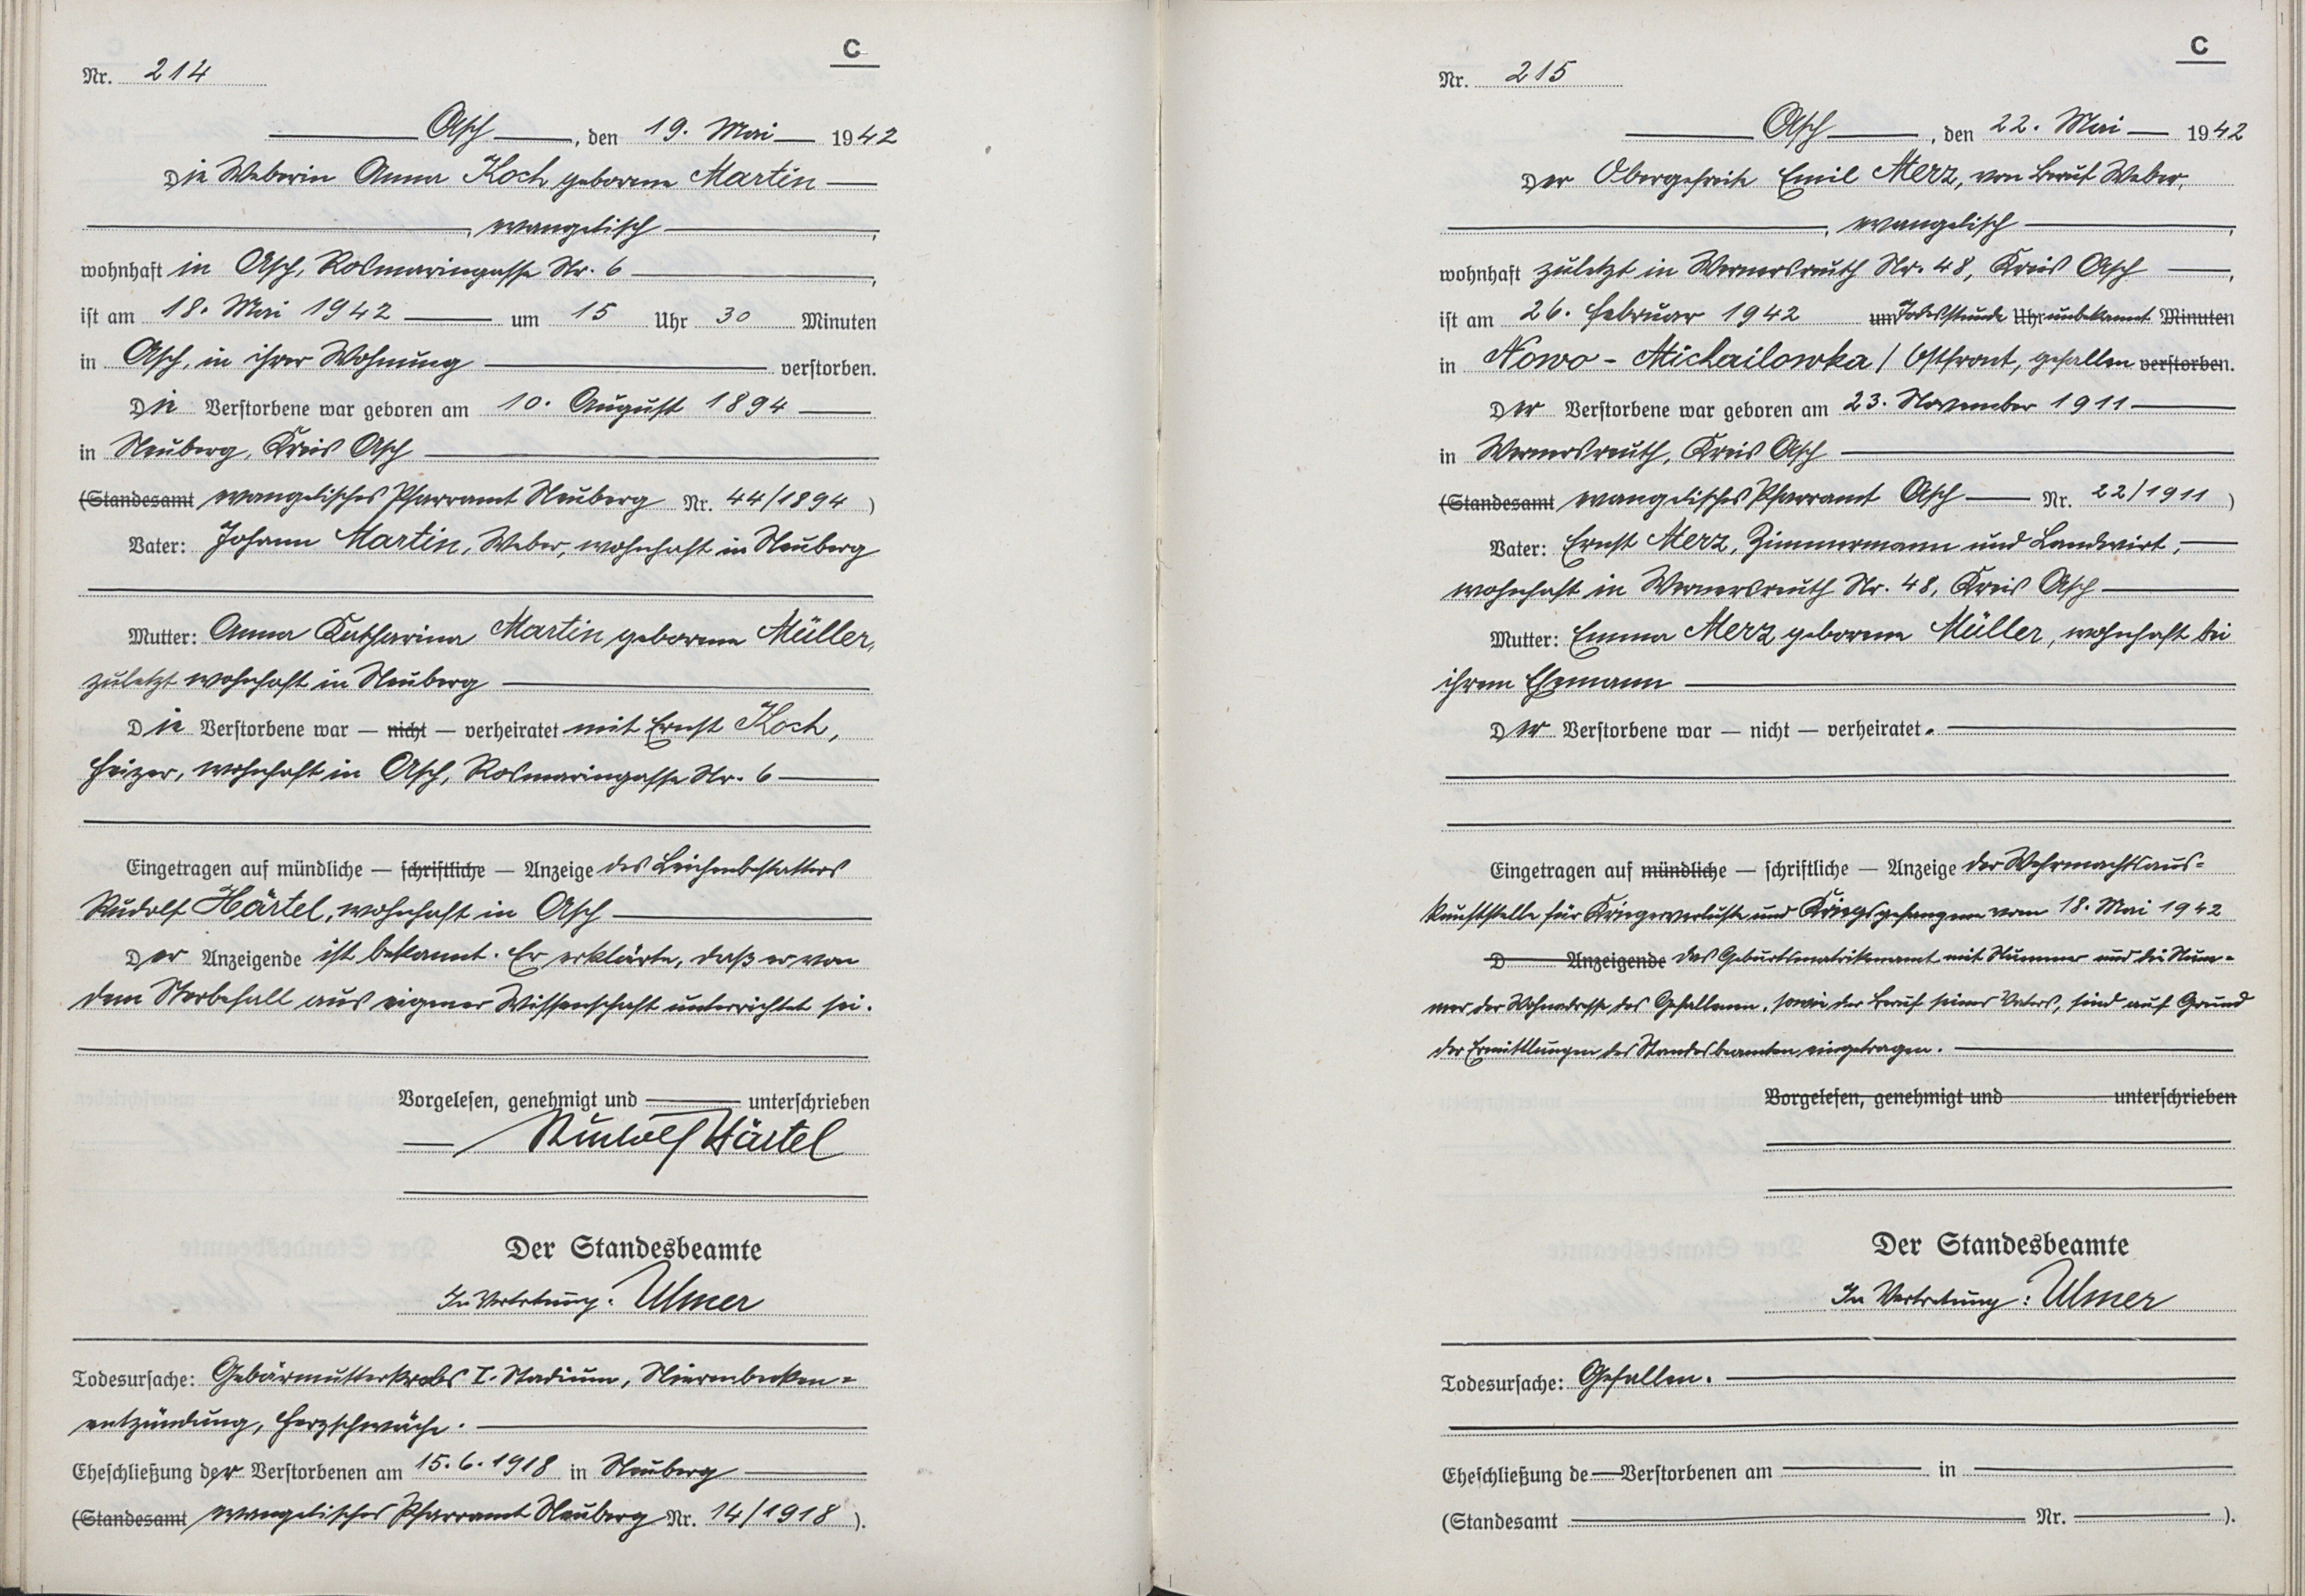 C
Nr. 214
Asch, den 19. Mai 1942
Die Weberin Anna Koch geborene Martin
, evangelisch,
wohnhaft in Asch, Rosmaringasse Nr. 6,
ist am 18. Mai 1942 um 15 Uhr 30 Minuten
in Asch, in ihrer Wohnung verstorben.
Die Verstorbene war geboren am 10. August 1894
in Neuberg, Kreis Asch
(Standesamt evangelisches Pfarramt Neuberg Nr. 44/1894)
Vater: Johann Martin, Weber, wohnhaft in Neuberg
Mutter: Anna Katharina Martin geborene Müller,
zuletzt wohnhaft in Neuberg
Die Verstorbene war — nicht — verheiratet mit Ernst Koch,
Heizer, wohnhaft in Asch, Rosmaringasse Nr. 6
Eingetragen auf mündliche — schriftliche — Anzeige des Leichenbestatters
Rudolf Härtel, wohnhaft in Asch
Der Anzeigende ist bekannt. Er erklärte, daß er von
dem Sterbefall aus eigener Wissenschaft unterrichtet sei.
Vorgelesen, genehmigt und unterschrieben
Rudolf Härtel
Der Standesbeamte
In Vertretung: Ulmer
Todesursache: Gebärmutterkrebs I. Stadium, Nierenbecken=
entzündung, Herzschwäche.
Eheschließung der Verstorbenen am 15.6.1918 in Neuberg
(Standesamt evangelisches Pfarramt Neuberg Nr. 14/1918).
C
Nr. 215
Asch, den 22. Mai 1942
Der Obergefreite Emil Merz, von Beruf Weber,
, evangelisch,
wohnhaft zuletzt in Wernersreuth Nr. 48, Kreis Asch,
ist am 26. Februar 1942 um Todesstunde Uhr unbekannt Minuten
in Nowo-Michailowka / Ostfront, gefallen verstorben.
Der Verstorbene war geboren am 23. November 1911
in Wernersreuth, Kreis Asch
(Standesamt evangelisches Pfarramt Asch Nr. 22/1911)
Vater: Ernst Merz, Zimmermann und Landwirt,
wohnhaft in Wernersreuth Nr. 48, Kreis Asch
Mutter: Emma Merz geborene Müller, wohnhaft bei
ihrem Ehemann
Der Verstorbene war — nicht — verheiratet.
Eingetragen auf mündliche — schriftliche — Anzeige der Wehrmachtsaus=
kunftstelle für Kriegerverluste und Kriegsgefangene vom 18. Mai 1942
D Anzeigende Das Geburtsmatrikenamt mit Nummer und die Num=
mer der Wohnadresse des Gefallenen, sowie der Beruf seines Vaters, sind auf Grund
der Ermittlungen des Standesbeamten eingetragen.
Vorgelesen, genehmigt und unterschrieben
Der Standesbeamte
In Vertretung: Ulmer
Todesursache: Gefallen.
Eheschließung de Verstorbenen am in
(Standesamt Nr. ).